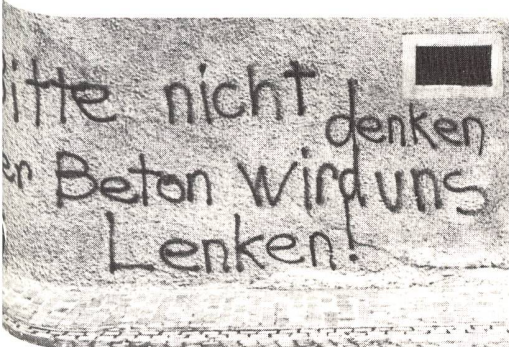 itte nicht denken
er Beton wird uns
Lenken!